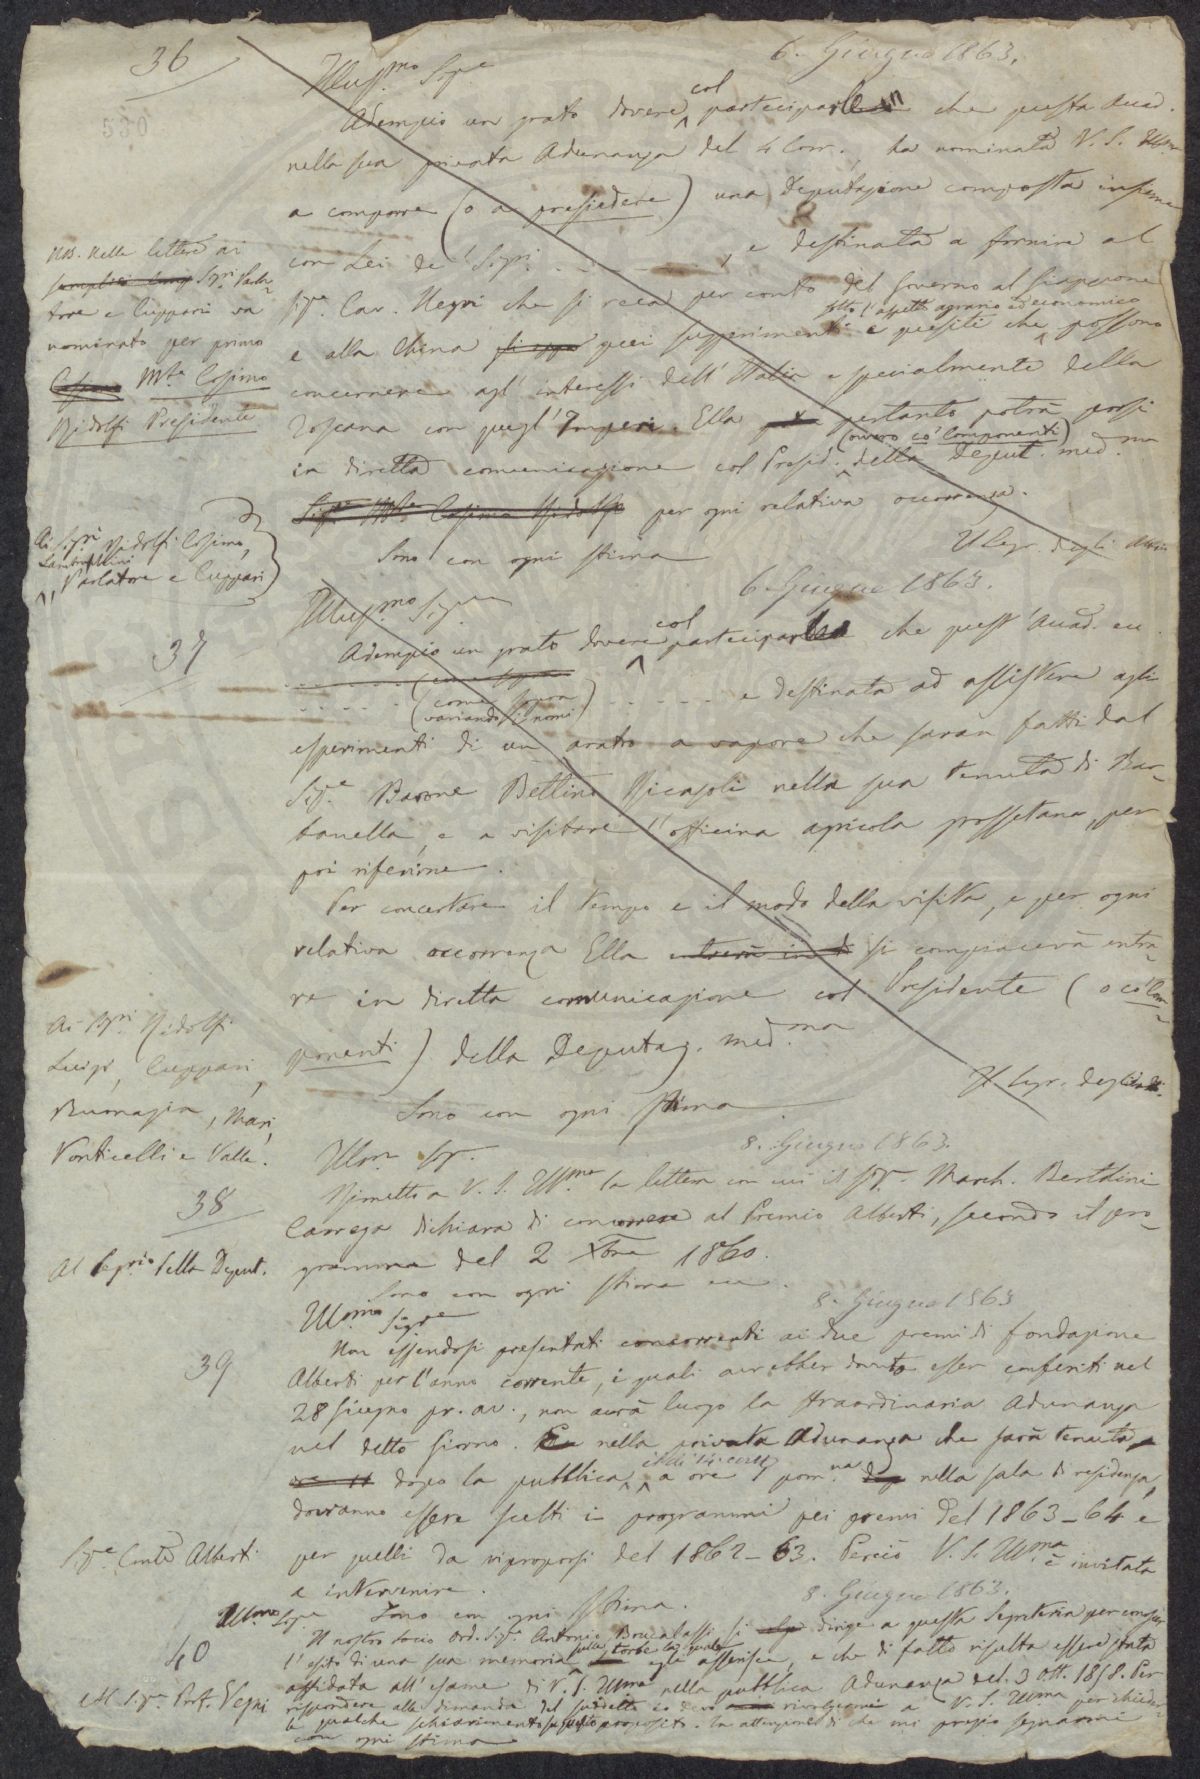 36
6. Giugno 1863.
Illus.mo Sig.re
Adempio un grato dovere col partecipar che questa Accad.
nella sua privata Adunanza del 4 Corr., ha nominata V. S. Ill.ma
a comporre (o a presiedere) una Deputazione composta insieme
con Lei de' Sigri. . . . . . . . , e destinata a fornire al
Sig.e Cav. Negri che si reca per conto del Governo al Giappone
e alla China quei suggerimenti e quesiti che sotto l'aspetto agrario ed economico possono
concernere agl' interessi dell' Italia e specialmente della
Toscana con quegl' Imperi. Ella pertanto potrà porsi
in diretta comunicazione col Presid. (ovvero co' Componenti) della Deput. med.ma
Sig.re M.se Cosimo Ridolfi per ogni relativa occorrenza.
Sono con ogni stima
Il Segr. degli Atti
NB. Nelle lettere ai
semplici Sigri. Parla-
tore e Cuppari va
nominato per primo
M.se Cosimo
Ridolfi Presidente
Ai Sigri Ridolfi Cosimo,
Lambruschini
Parlatore e Cuppari
37
6 Giugno 1863.
Illus.mo Sig.re
Adempio un grato dovere col partecipar che quest' Accad. ec.
. . . . . . (come sopra
variando i nomi) . . . . . . e destinata ad assistere agli
esperimenti di un aratro a vapore che saran fatti dal
Sig.e Barone Bettino Ricasoli nella sua tenuta di Bar-
banella, e a visitare l'officina agricola grossetana, per
poi riferirne.
Per concertare il tempo e il modo della visita, e per ogni
relativa occorrenza Ella entrerà in di si compiacerà entra-
re in diretta comunicazione col Presidente (o co' Com-
ponenti) della Deputaz. med.ma
Sono con ogni stima
Il Segr. degli Atti.
Ai Sigri Ridolfi
Luigi, Cuppari,
Buonazia, Mari,
Ponticelli e Valle.
38
8. Giugno 1863.
Illmo. Sig.
Rimetto a V. S. Ill.ma la lettera con cui il Sig.re March. Bertolini
Carrega dichiara di concorrere al Premio Alberti, secondo il pro-
gramma del 2 Xbre 1860.
Sono con ogni stima ec.
Al Segrio della Deput.
39
8. Giugno 1863
Ill.mo Sig.re
Non essendosi presentati concorrenti ai due premi di fondazione
Alberti per l'anno corrente, i quali avrebber dovuto esser conferiti nel
28 Giugno pr. av., non avrà luogo la straordinaria Adunanza
nel detto Giorno. E nella privata Adunanza che sarà tenuta
dopo la pubblica, il dì 14 corr. a ore 1 pom.na nella sala di residenza,
dovranno essere scelti i programmi pei premi del 1863-64 e
per quelli da riproporsi del 1862-63. Perciò V. S. Ill.ma è invitata
a intervenire.
Sono con ogni stima.
Sig.e Conte Alberti
40
8. Giugno 1863.
Ill.mo Sig.re
Il nostro socio Ord. Sig.re Antonio Brucalassi si dirige a questa Segreteria per conoscer
l'esito di una sua memoria sulle torbe la quale egli asserisce, e che di fatto risulta essere stata
affidata all'esame di V. S. Ill.ma nella pubblica Adunanza del 3 Ott. 1858. Per
rispondere alla dimanda del suddetto io devo rivolgermi a V. S. Ill.ma per chieder-
le qualche schiarimento su questo proposito. In attenzione di che mi pregio segnarmi
con ogni stima
Al Sig.re Prof. Vegni